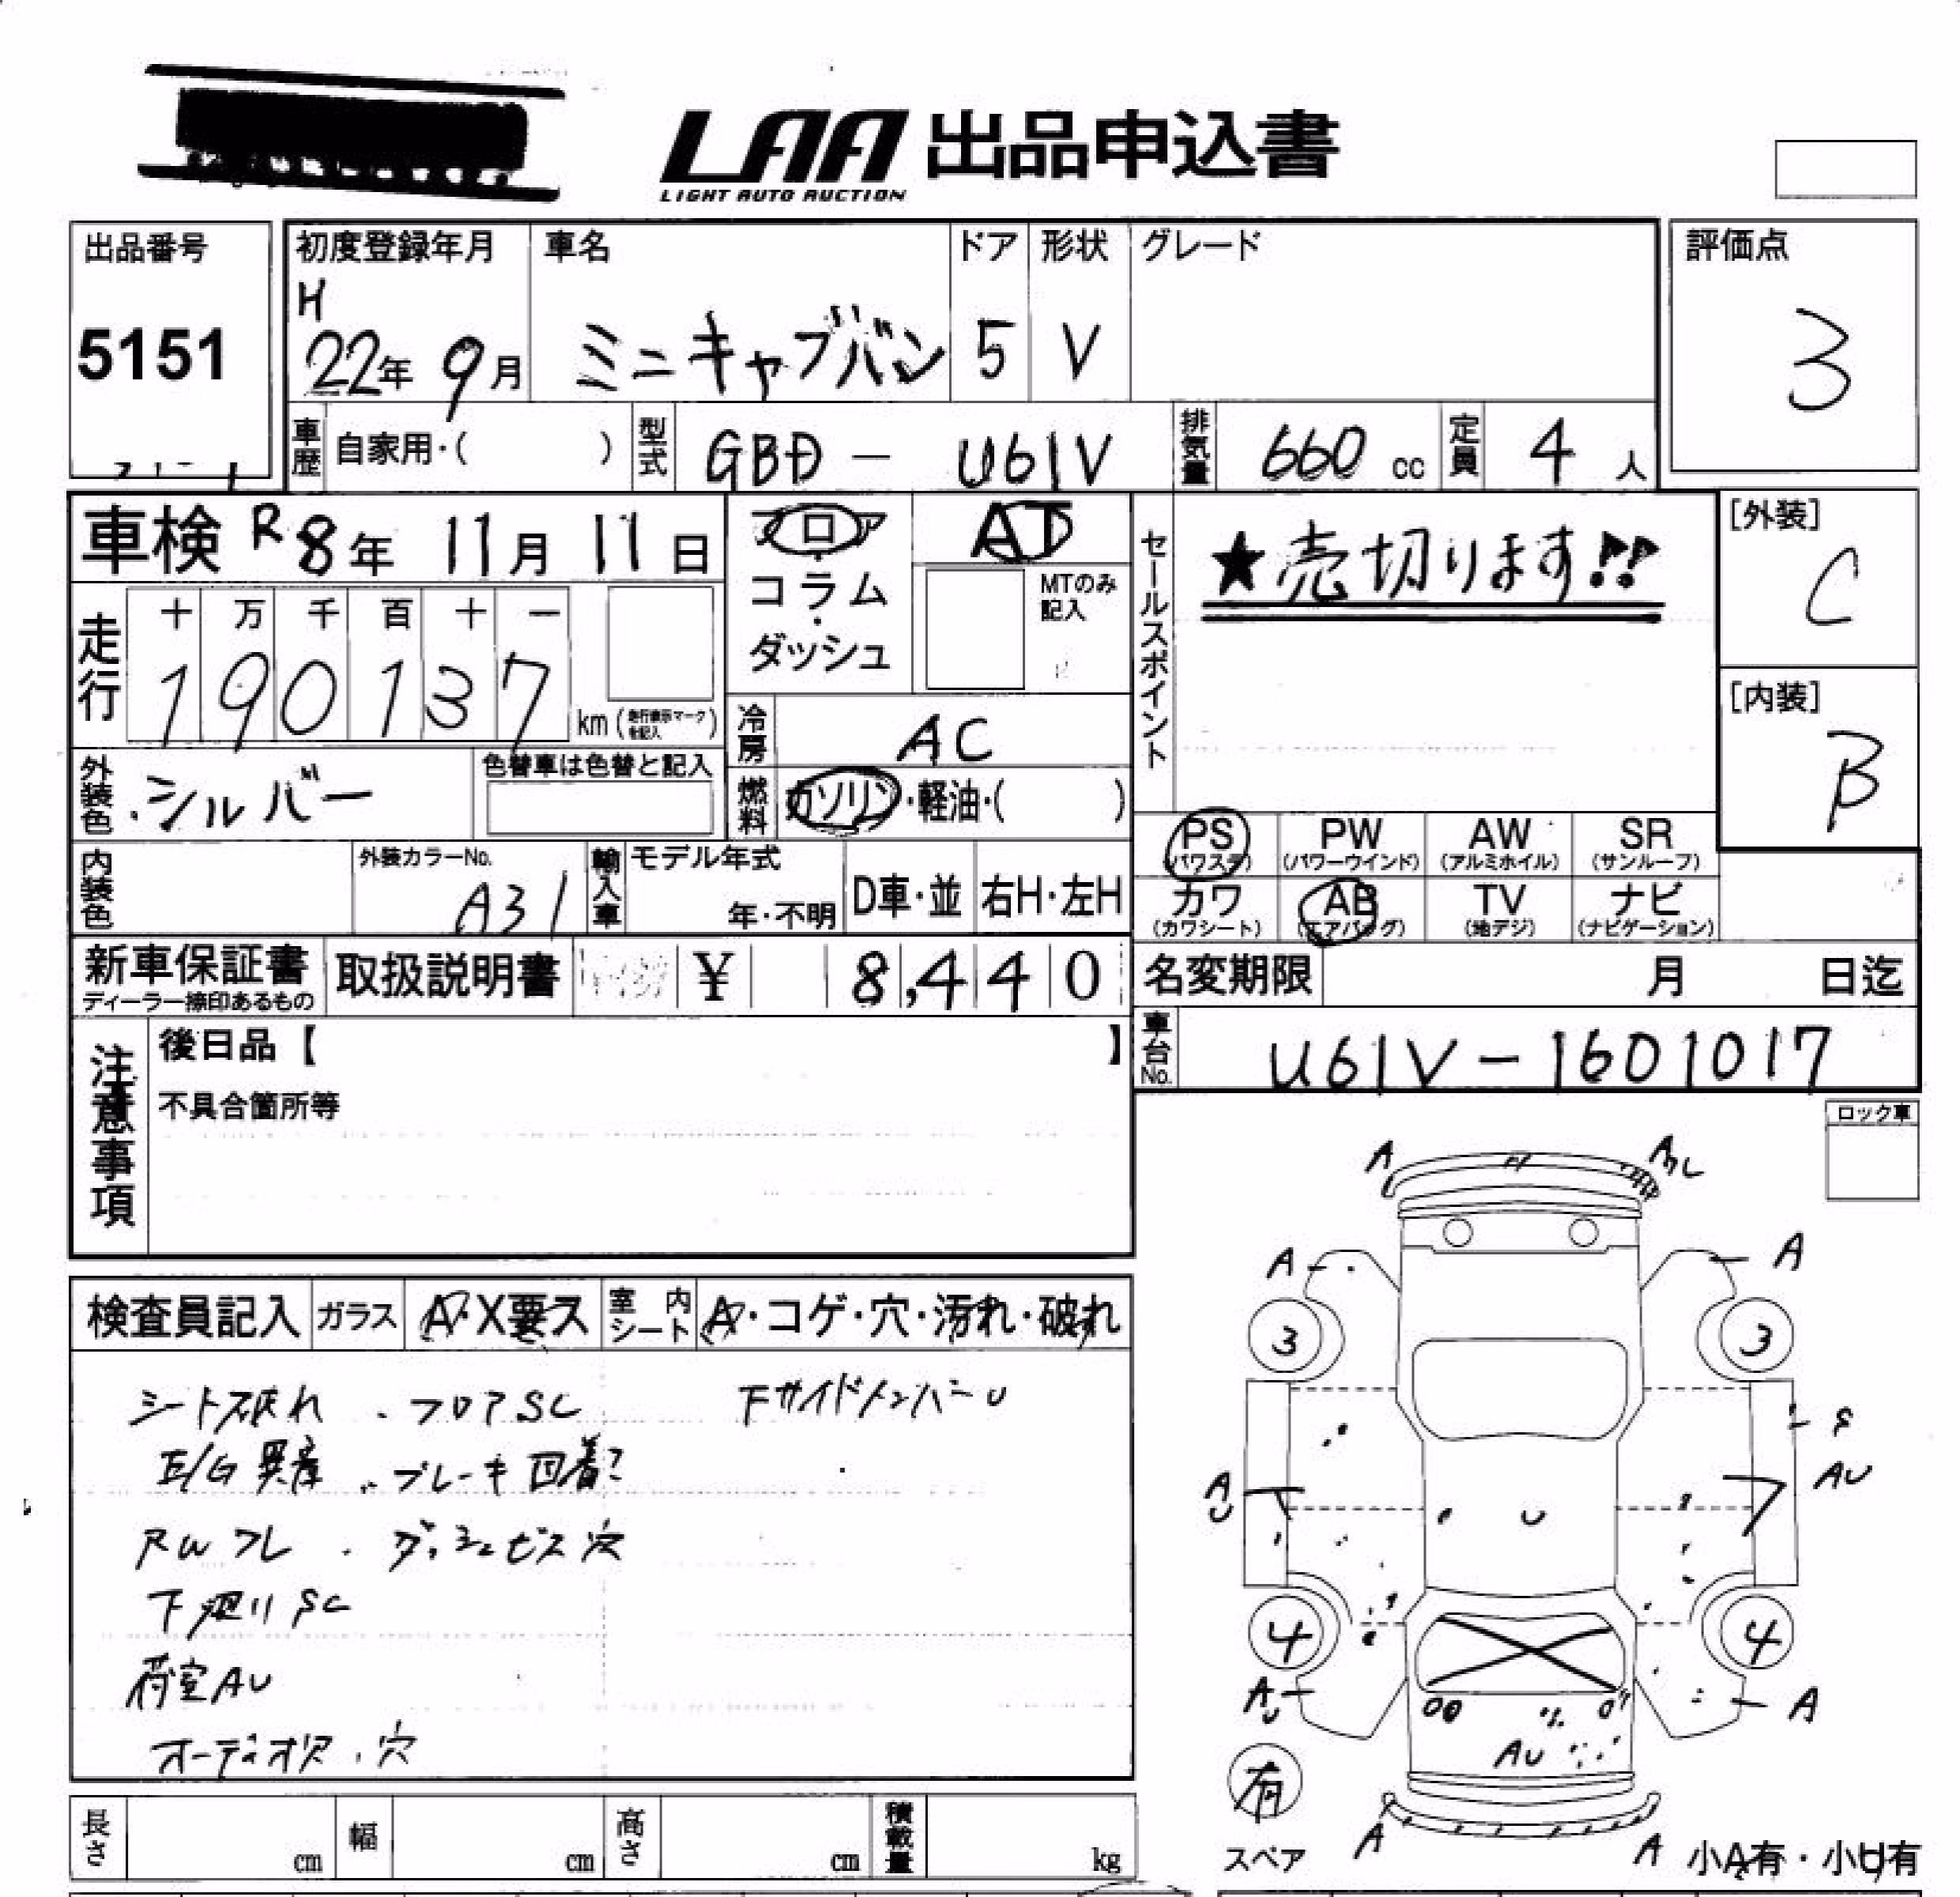 LAA 出品申込書
LIGHT AUTO AUCTION
出品番号
5151
初度登録年月
H
22年 9月
車名
ミニキャブバン
ドア
5
形状
V
グレード
評価点
3
車歴 自家用・( )
型式 GBD - U61V
排気量 660 cc
定員 4 人
車検 R8年 11月 11日
フロア・コラム・ダッシュ
AT
MTのみ記入
セールスポイント
★売切ります!!
[外装]
C
[内装]
B
走行
十 万 千 百 十 一
1 9 0 1 3 7
km (走行表示マークを記入)
冷房 AC
外装色 シルバー
色替車は色替と記入
燃料 ガソリン・軽油・( )
PS (パワステ)
PW (パワーウインド)
AW (アルミホイル)
SR (サンルーフ)
カワ (カワシート)
AB (エアバッグ)
TV (地デジ)
ナビ (ナビゲーション)
内装色
外装カラーNo.
A31
輸入車
モデル年式
年・不明
D車・並
右H・左H
新車保証書
ディーラー捺印あるもの
取扱説明書
¥ 8,440
名変期限 月 日迄
車台No. U61V-1601017
注意事項
後日品【 】
不具合箇所等
ロック車
検査員記入
ガラス A・X要ス
室内シート A・コゲ・穴・汚れ・破れ
シート破れ . フロアSC
下サイドメンバーU
E/G異音 . ブレーキ固着?
RWフレ . ダッシュビス穴
下廻りSC
荷室AU
オーディオ欠 . 穴
A
A
A
A
3
3
S
A
U
AU
4
4
A
U
A
AU
有
スペア
A
A
小A有・小U有
長さ cm
幅 cm
高さ cm
積載量 kg